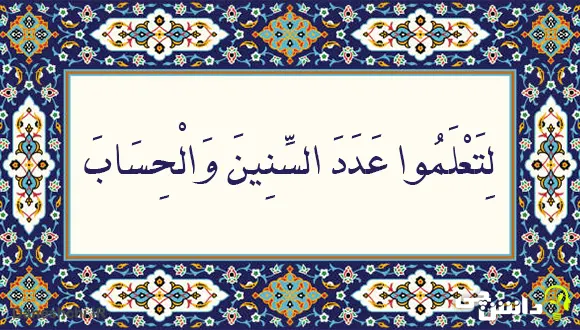 لِتَعْلَمُوا عَدَدَ السِّنِينَ وَالْحِسَابَ